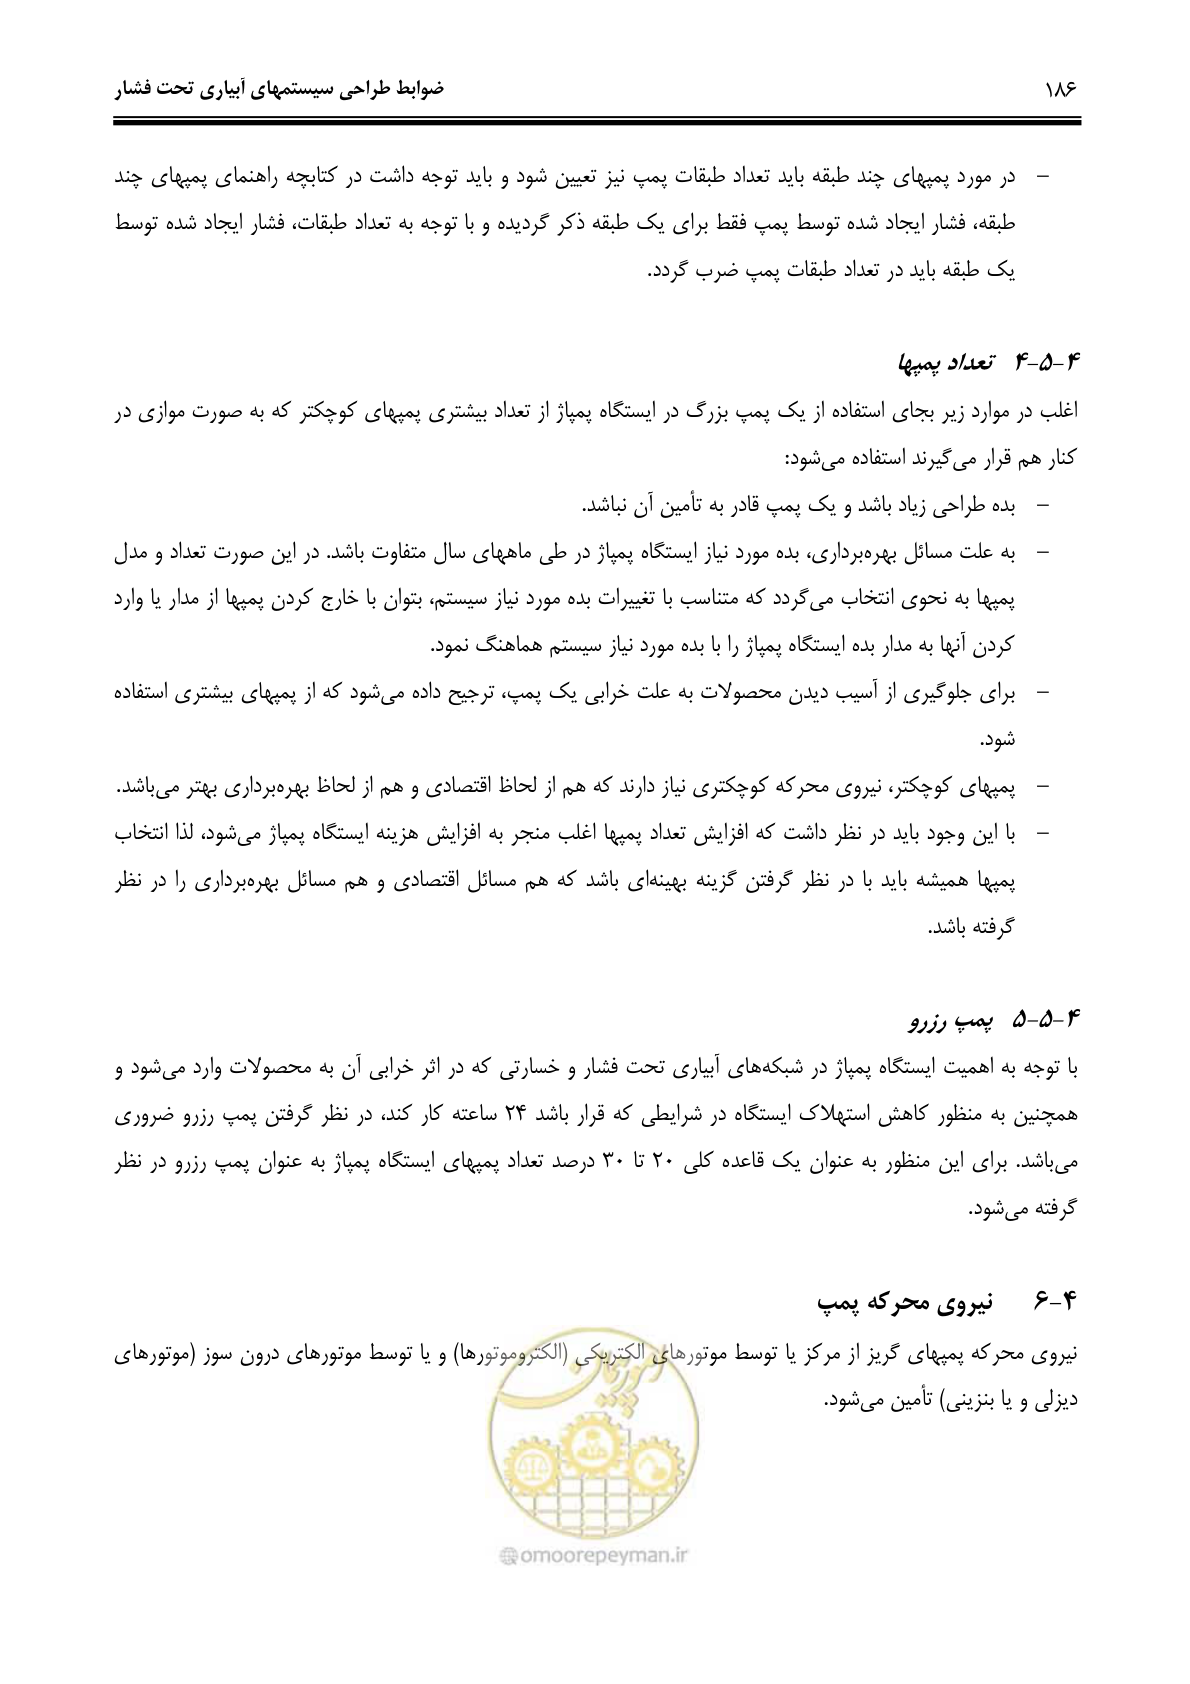 ۱۸۶
ضوابط طراحی سیستمهای آبیاری تحت فشار
– در مورد پمپهای چند طبقه باید تعداد طبقات پمپ نیز تعیین شود و باید توجه داشت در کتابچه راهنمای پمپهای چند
طبقه، فشار ایجاد شده توسط پمپ فقط برای یک طبقه ذکر گردیده و با توجه به تعداد طبقات، فشار ایجاد شده توسط
یک طبقه باید در تعداد طبقات پمپ ضرب گردد.
۴-۵-۴ تعداد پمپها
اغلب در موارد زیر بجای استفاده از یک پمپ بزرگ در ایستگاه پمپاژ از تعداد بیشتری پمپهای کوچکتر که به صورت موازی در
کنار هم قرار می‌گیرند استفاده می‌شود:
– بده طراحی زیاد باشد و یک پمپ قادر به تأمین آن نباشد.
– به علت مسائل بهره‌برداری، بده مورد نیاز ایستگاه پمپاژ در طی ماههای سال متفاوت باشد. در این صورت تعداد و مدل
پمپها به نحوی انتخاب می‌گردد که متناسب با تغییرات بده مورد نیاز سیستم، بتوان با خارج کردن پمپها از مدار یا وارد
کردن آنها به مدار بده ایستگاه پمپاژ را با بده مورد نیاز سیستم هماهنگ نمود.
– برای جلوگیری از آسیب دیدن محصولات به علت خرابی یک پمپ، ترجیح داده می‌شود که از پمپهای بیشتری استفاده
شود.
– پمپهای کوچکتر، نیروی محرکه کوچکتری نیاز دارند که هم از لحاظ اقتصادی و هم از لحاظ بهره‌برداری بهتر می‌باشد.
– با این وجود باید در نظر داشت که افزایش تعداد پمپها اغلب منجر به افزایش هزینه ایستگاه پمپاژ می‌شود، لذا انتخاب
پمپها همیشه باید با در نظر گرفتن گزینه بهینه‌ای باشد که هم مسائل اقتصادی و هم مسائل بهره‌برداری را در نظر
گرفته باشد.
۴-۵-۵ پمپ رزرو
با توجه به اهمیت ایستگاه پمپاژ در شبکه‌های آبیاری تحت فشار و خسارتی که در اثر خرابی آن به محصولات وارد می‌شود و
همچنین به منظور کاهش استهلاک ایستگاه در شرایطی که قرار باشد ۲۴ ساعته کار کند، در نظر گرفتن پمپ رزرو ضروری
می‌باشد. برای این منظور به عنوان یک قاعده کلی ۲۰ تا ۳۰ درصد تعداد پمپهای ایستگاه پمپاژ به عنوان پمپ رزرو در نظر
گرفته می‌شود.
۴-۶ نیروی محرکه پمپ
نیروی محرکه پمپهای گریز از مرکز یا توسط موتورهای الکتریکی (الکتروموتورها) و یا توسط موتورهای درون سوز (موتورهای
دیزلی و یا بنزینی) تأمین می‌شود.
امور پیمان
@omoorepeyman.ir